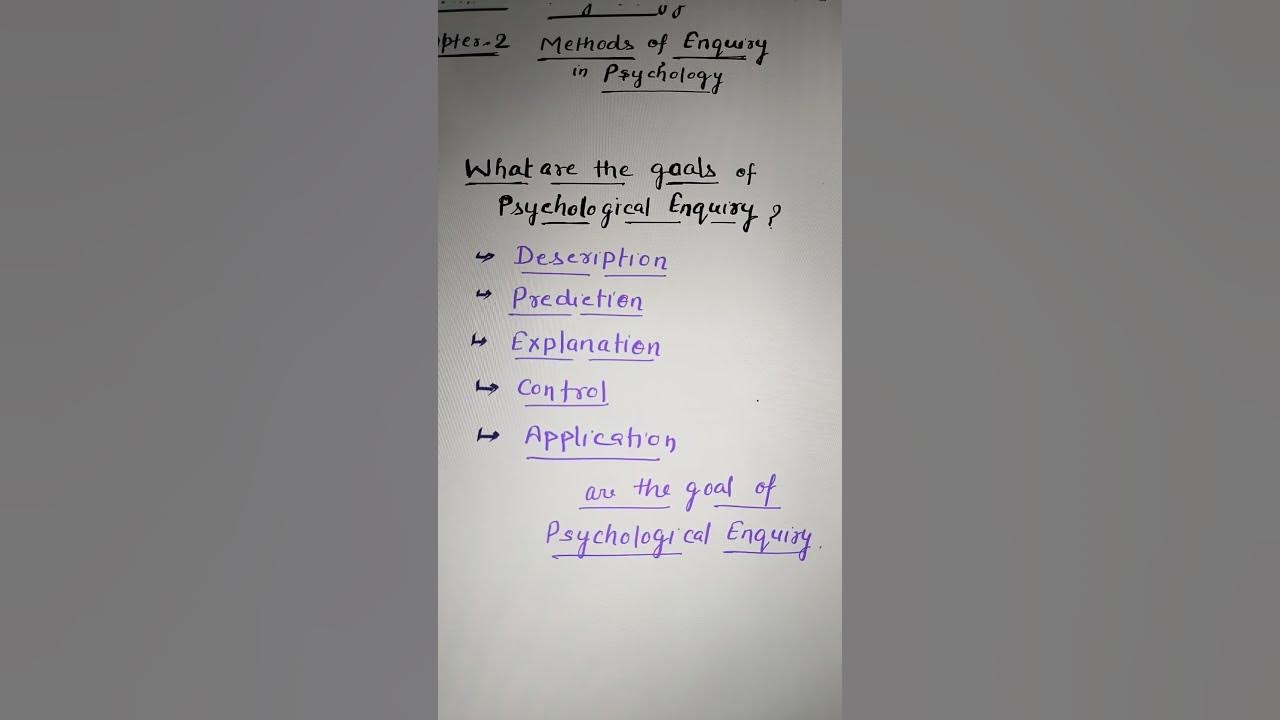 pter-2 Methods of Enquiry
in Psychology
What are the goals of
Psychological Enquiry?
↪ Description
↪ Prediction
↪ Explanation
↪ Control
↪ Application
are the goal of
Psychological Enquiry.